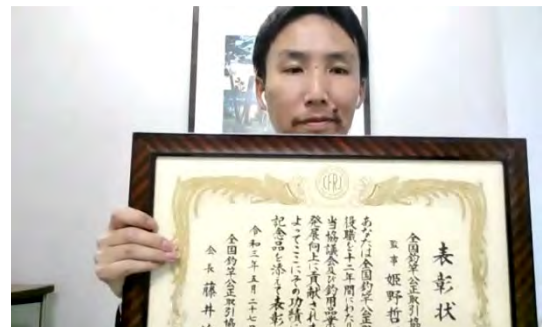 表彰状
全国釣竿公正取引協
監事 姫野哲
あなたは全国釣竿公正
役職を十二年間にわた
当協議会及び釣用品業
発展向上に貢献された
よってここにその功績
記念品を添えて表彰
令和三年五月二十七
全国釣竿公正取引協
会長 藤井